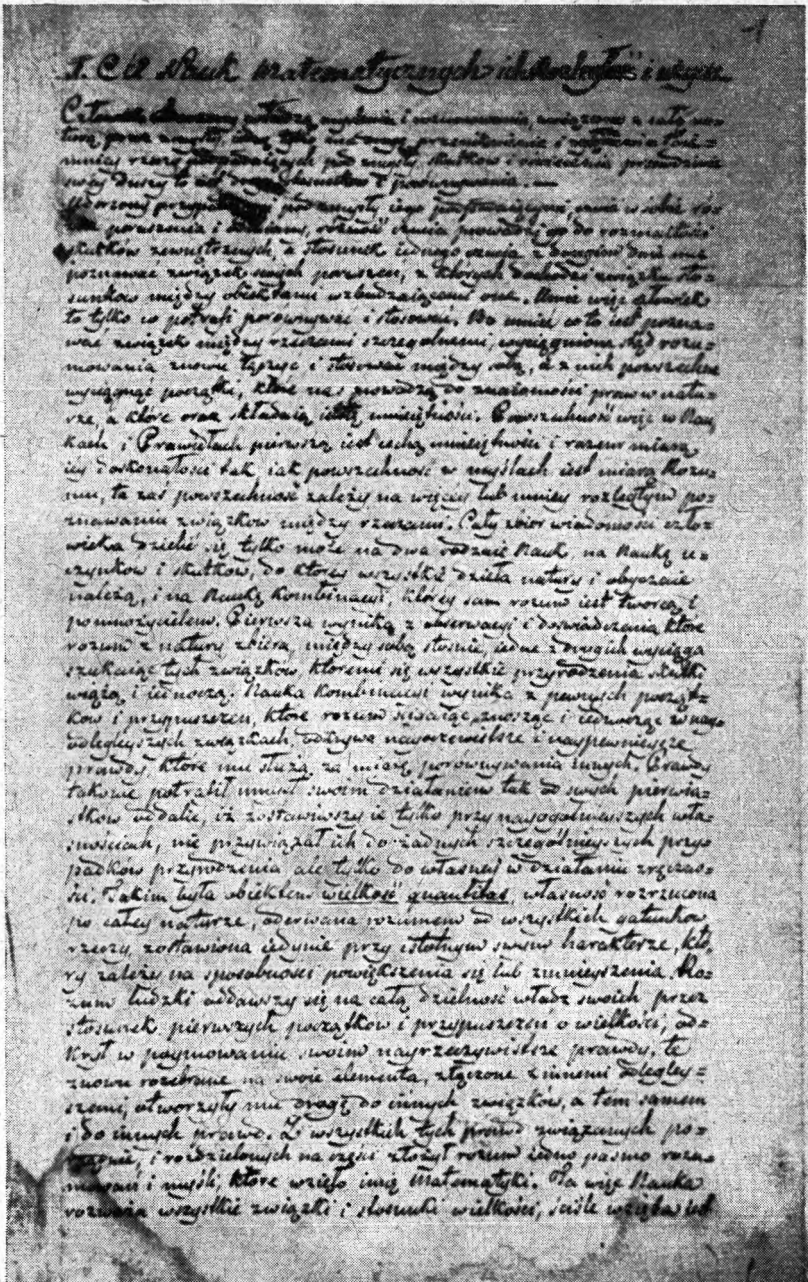 -1
I. Cel Nauk Matematycznych ich rozległość i użycie
Człowiek obdarzony władzą myślenia i rozumowania, związany z całą na-
turą przez zmysły,
rzeczy pod zmysły skutków i
swoiey duszy to porównywania. —
pod zmysły iego podpadaiącymi, czuie w sobie róż-
poruszenia i odmiany, różność czucia prowadzi go do rozmaitości
skutków zewnętrznych, a stosunek iednego czucia z drugiém daie mu
poznawać związek swych poruszeń, z których dochodzi związku sto-
sunków między obiektami wzbudzaiącemi one. Umie więc człowiek
to tylko co potrafi porównywać i stosować. Bo umieć co to iest pozna-
wać związek między rzeczami szczególnemi, wyciągnione stąd rozu-
mowania znowu łączyć i stosować między sobą, a z nich powszechne
wyciągnąć początki, które nas prowadzą do znaiomości praw w natu-
rze, a które oraz składaią istotę umieiętności. Powszechność więc w Nau-
kach i Prawidłach pierwszą iest cechą umieiętności i razem miarą
iey doskonałości tak, iak powszechność w myślach iest miarą Rozu-
mu, ta zaś powszechność zależy na więcey lub mniey rozległym po-
znawaniu związków między rzeczami. Cały zbior wiadomości czło-
wieka dzielić się tylko może na dwa rodzaie Nauk, na Naukę u-
czynków i skutków, do którey wszystkie dzieła natury i obyczaie
należą, i na Naukę Kombinacyi, którey sam rozum iest twórcą i
pomnożycielem. Pierwsza wynika z obserwacyi i doświadczenia, które
rozum z natury zbiera, między sobą stosuie, iedne z drugich wyciąga
szukaiąc tych związków, któremi się wszystkie przyrodzenia skutki
wiążą i iednoczą. Nauka Kombinacyi wynika z pewnych począt-
ków i przypuszczeń, które rozum ścieśniaiąc, znosząc i iednocząc w nay-
odlegleyszych związkach, odkrywa nayoczewistsze i naypewnieysze
prawdy, które mu służą za miarę porównywania innych. Prawdy
takowe potrafił umysł swoim działaniem tak od swych pierwia-
stków oddalić, iż zostawiwszy ie tylko przy nayogólnieyszych wła-
snościach, nie przywiązał ich do żadnych szczególnieyszych przy-
padków przyrodzenia ale tylko do własney w działaniu zręczno-
ści. Takim była obiektem wielkość quantitas, własność rozrzucona
po całey naturze, oderwana rozumem od wszystkich gatunków
rzeczy, zostawiona iedynie przy istotnym swym charakterze, któ-
ry zależy na sposobności powiększenia się lub zmnieyszenia. Ro-
zum ludzki oddawszy się na całą dzielność władz swoich przez
stosunek pierwszych początków i przypuszczeń o wielkości, od-
krył w poymowaniu swoim nayrzeczywistsze prawdy, te
znowu rozebrane na swoie elementa, złączone z innemi odlegley-
szemi, otworzyły mu drogę do innych związków, a tem samem
i do innych prawd. Z wszystkich tych prawd związanych po-
i rozdzielonych na części złożył rozum iedno pasmo rozu-
mowań i myśli, które wzięło imię Matematyki. Ta więc Nauka
rozważa wszystkie związki i stosunki wielkości, ściśle wzięta iest